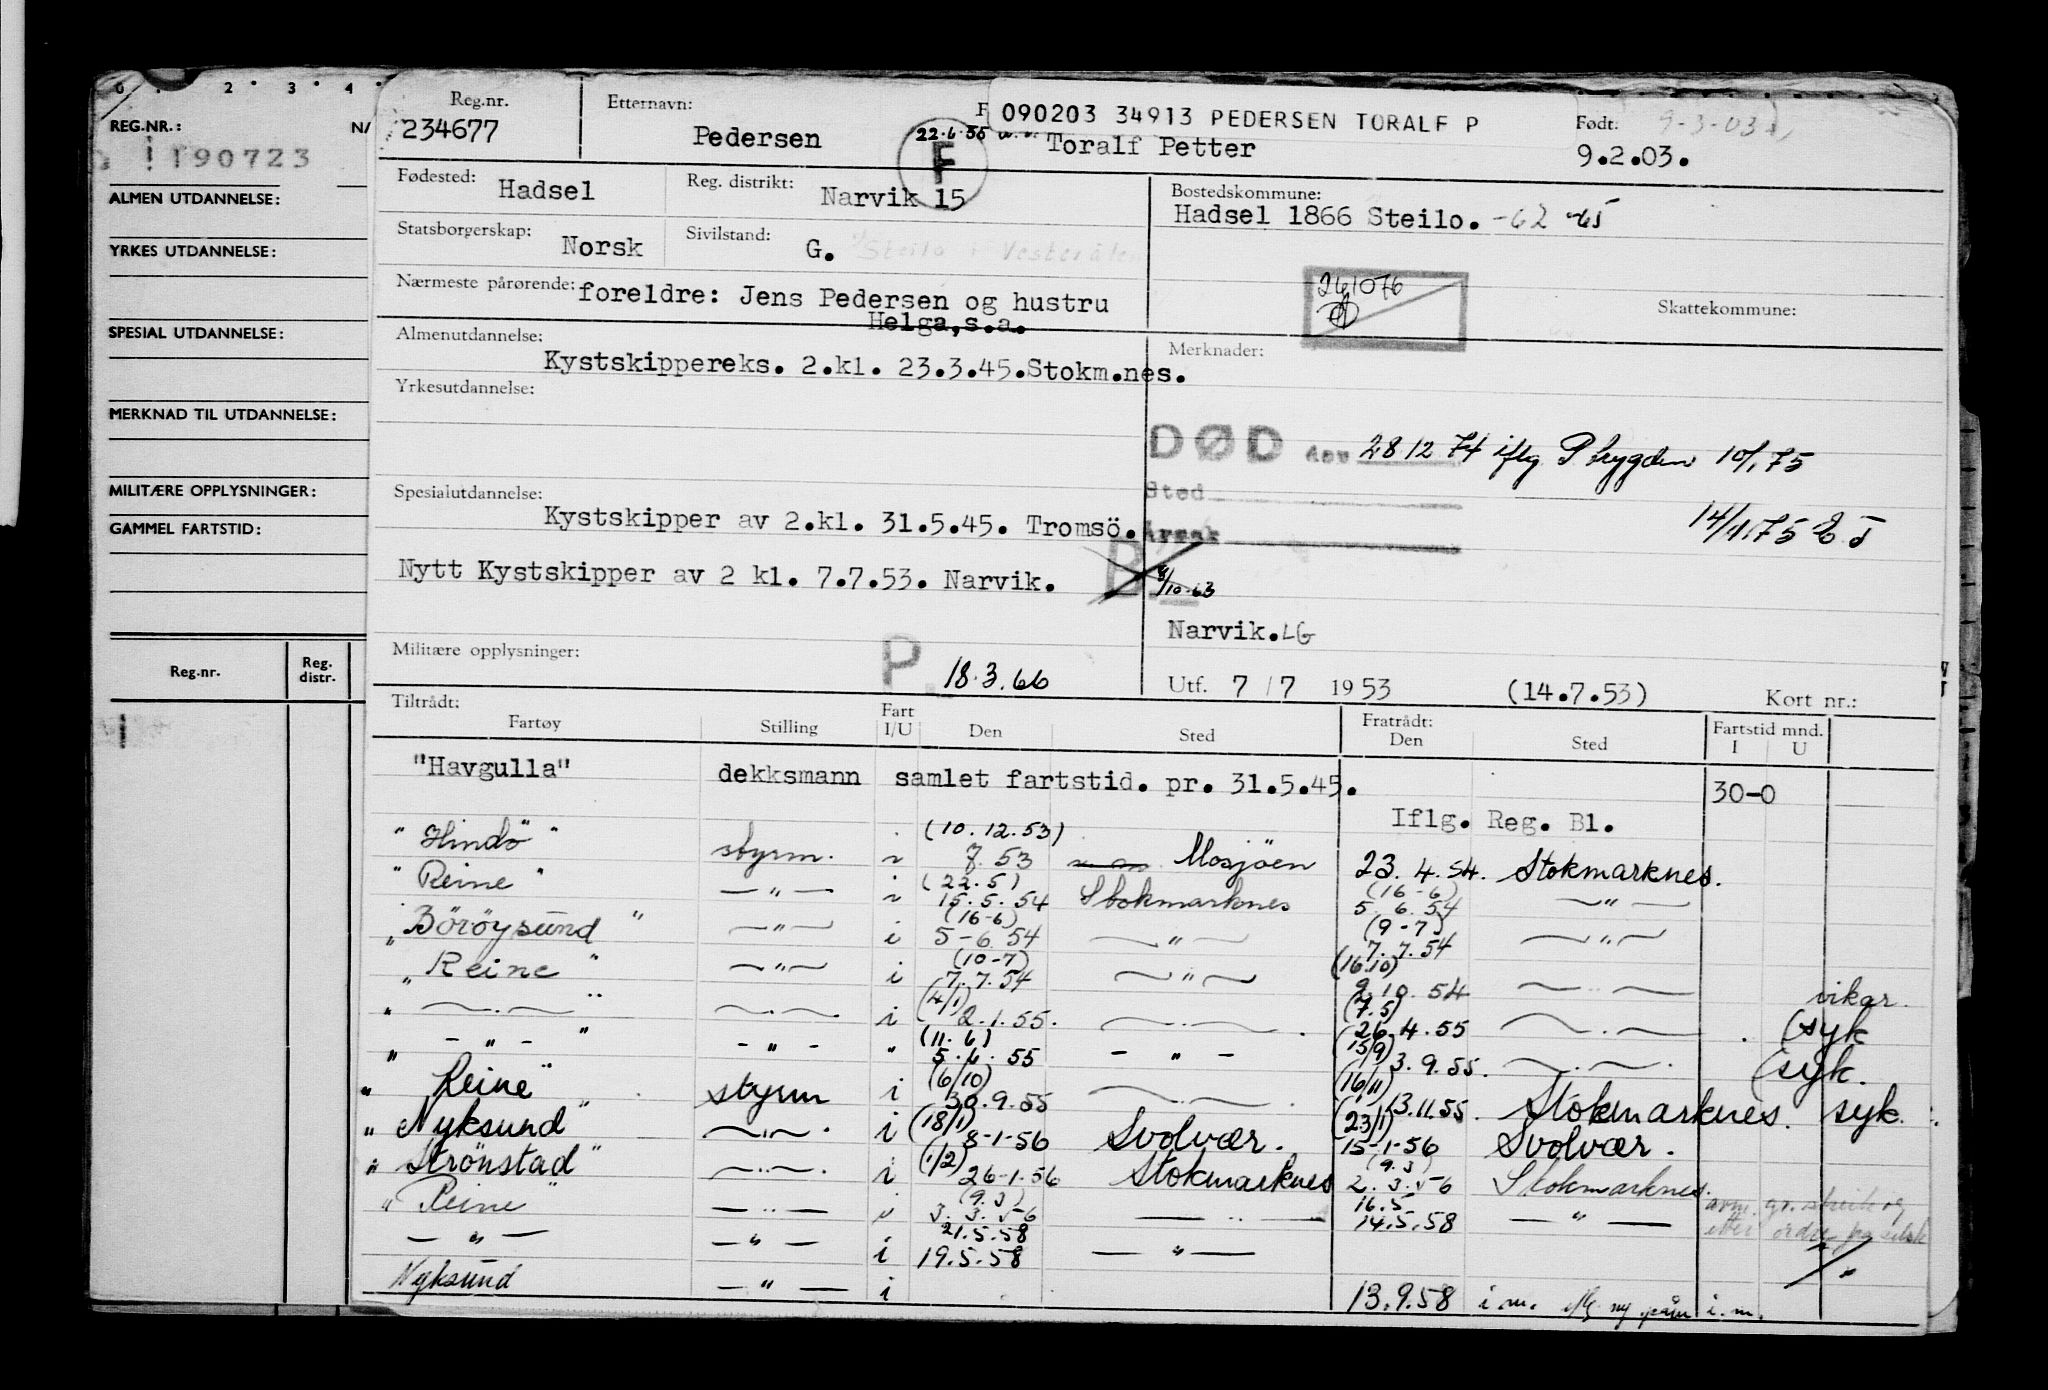 0 . 2 . 3 . 4 .
REG.NR.: N/
190723
ALMEN UTDANNELSE:
YRKES UTDANNELSE:
SPESIAL UTDANNELSE:
MERKNAD TIL UTDANNELSE:
MILITÆRE OPPLYSNINGER:
GAMMEL FARTSTID:
Reg.nr. Reg. distr.
Reg.nr. 234677
Etternavn: Pedersen
F 22.6.55
090203 34913 PEDERSEN TORALF P
Toralf Petter
Født: 9-3-03
9.2.03.
Fødested: Hadsel
Reg. distrikt: Narvik 15
Bostedskommune:
Hadsel 1866 Steilo. -62 -65
Statsborgerskap: Norsk
Sivilstand: G. Steilo i Vesterålen
Nærmeste pårørende: foreldre: Jens Pedersen og hustru
Helga, s.a.
261076
Skattekommune:
Almenutdannelse:
Kystskippereks. 2.kl. 23.3.45.Stokm.nes.
Merknader:
Yrkesutdannelse:
DØD den 28 12 74 iflg P trygden 10/1 75
Sted
14/1.75 E J
Årsak
Spesialutdannelse:
Kystskipper av 2.kl. 31.5.45. Tromsö.
Nytt Kystskipper av 2 kl. 7.7.53. Narvik.
B 8/10-63
Narvik. LG
Militære opplysninger: P. 18.3.66
Utf. 7 / 7 1953 (14.7.53) Kort nr.:
Tiltrådt: Fratrådt: Fartstid mnd.
Fartøy Stilling Fart I/U Den Sted Den Sted I U
"Havgulla" dekksmann samlet fartstid. pr. 31.5.45. 30-0
Iflg. Reg. Bl.
"Hindö" styrm. i (10.12.53) 7.53 Mosjöen 23.4.54. Stokmarknes.
"Reine" —"— i (22.5) 15.5.54 Stokmarknes (16-6) 5.6.54 —"—
"Böröysund" —"— i (16-6) 5-6.54 —"— (9-7) 7.7.54 —"—
"Reine" —"— i (10-7) 7.7.54 —"— (16.10) 9.10.54 —"— vikar.
" —"— " —"— i (4/1) 2.1.55. —"— (7.5) 26.4.55 —"— (syk
" —"— " —"— " (11.6) 5.6.55 —"— (15/9) 3.9.55. —"— (syk.
"Reine" styrm i (6/10) 30.9.55 —"— (16/11) 13.11.55. Stokmarknes. syk.
"Nyksund" —"— i (18/1) 8-1-56 Svolvær. (23/1) 15-1-56 Svolvær.
"Strönstad" —"— i (1/2) 26-1.56 Stokmarknes (9.3) 2.3.56 Stokmarknes.
"Reine" —"— i (9.3) 3.3.56 —"— 16.5 14.5.58 —"— avm. gr. streik og etter ordre fra selsk
—"— —"— i 21.5.58 19.5.58 —"— "
Nyksund —"— i 13.9.58 i.m. iflg ny påm i.m.